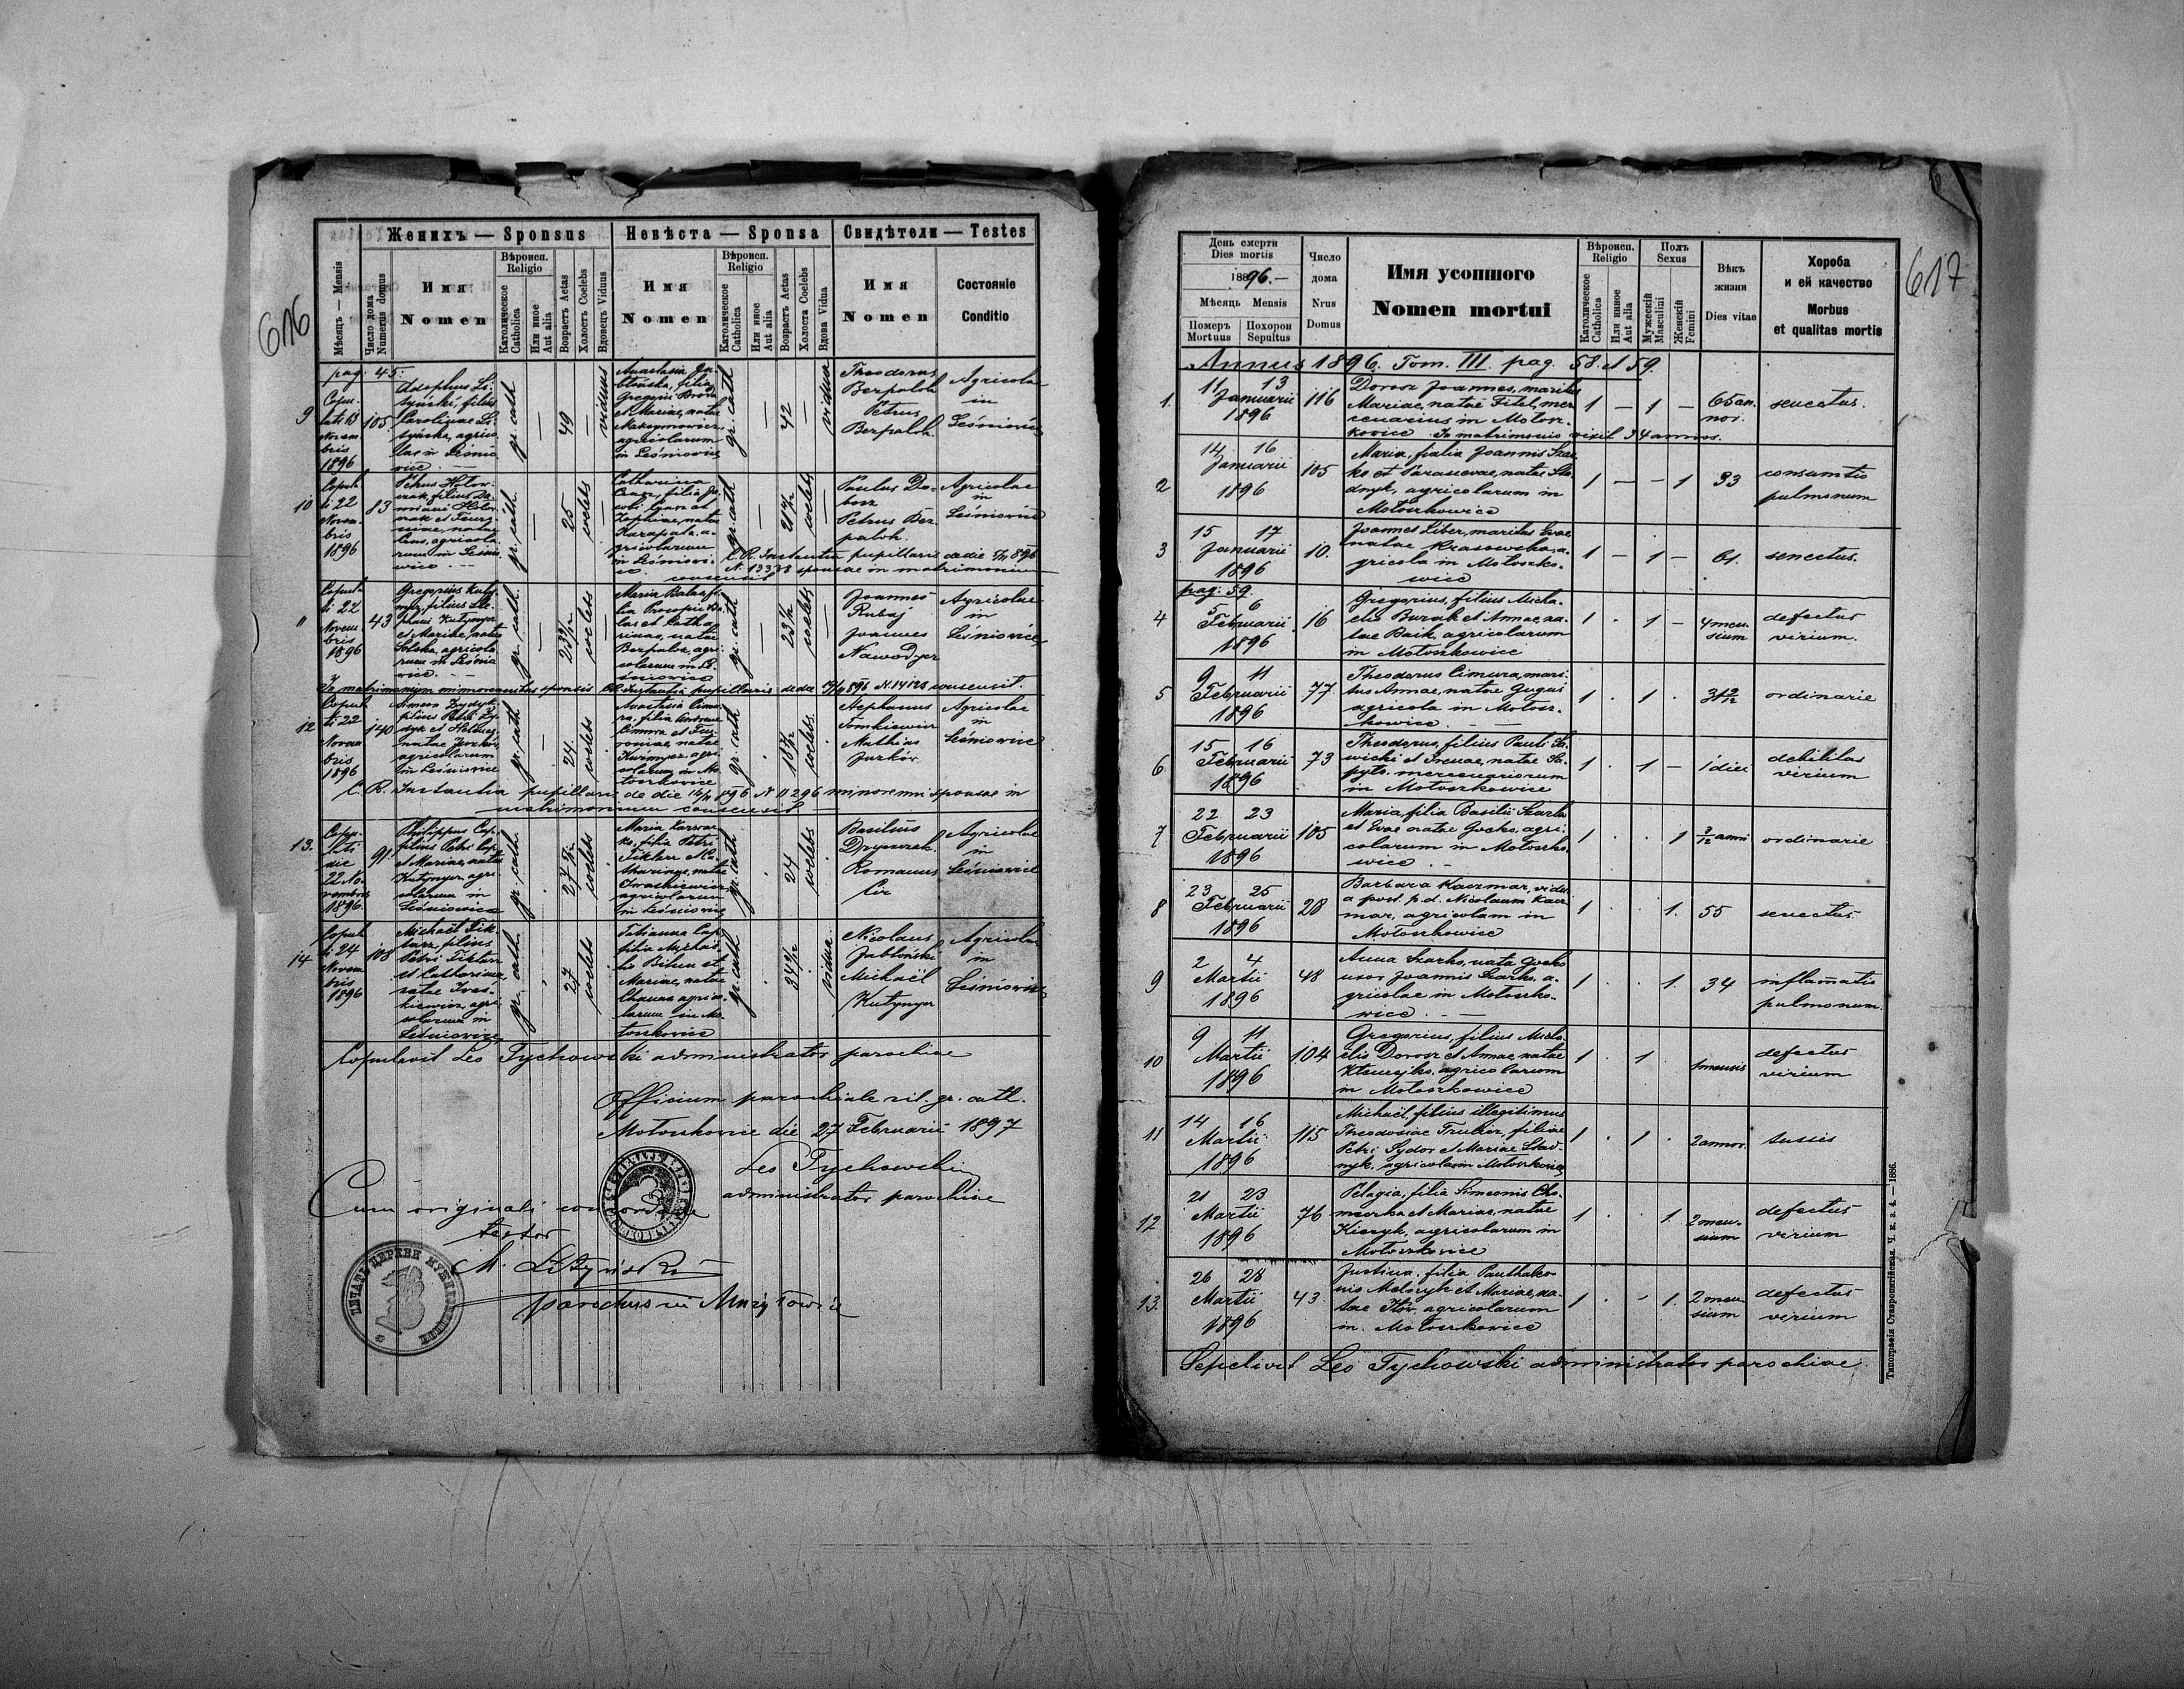 616
Женихъ — Sponsus
Невѣста — Sponsa
Свидѣтели — Testes
Мѣсяцъ — Mensis
Число дома
Numerus domus
Имя
Nomen
Вѣроисп.
Religio
Католическое
Catholica
Или иное
Aut alia
Возрастъ Aetas
Холостъ Coelebs
Вдовецъ Viduus
Имя
Nomen
Вѣроисп.
Religio
Католическое
Catholica
Или иное
Aut alia
Возрастъ Aetas
Холоста Coelebs
Вдова Vidua
Имя
Nomen
Состояніе
Conditio
pag. 45:
9
Copu-
lati 15
Novem
bris
1896
105
Adolphus Li-
tyński, filius
Carolinae Li-
tyńska, agrico
lae in Leśnio
wice
gr. cath
—
49
—
viduus
Anastasia
filia
Gregorii
et Mariae, natae
Maksymowicz
agricolarum
in Leśniowice
gr. cath
—
42
—
vidua
Theodorus
Berpalok
Petrus
Berpalok
Agricolae
in
Leśniowice
10
Copula
ti 22
Novem
bris
1896
83
Petrus
filius Da-
miani
agricola
rum in Leśnio
wice
gr. cath.
—
25
coelebs
—
Catharina
filia Ja-
cobi
natae
Karapata a-
gricolarum
in Leśniowi-
ce
gr. cath
—
coelebs
—
Paulus
Petrus Ber
palok
Agricolae
in
Leśniowice
C. R. Instantia pupillaris de die
N. 13338 sponsae in matrimonium
consensit
11
Copula
ti 22
Novem
bris
1896
43
Gregorius Kuty-
nyr, filius Ste-
phani Kutynyr
et Mariae, natae
agricola
rum in Leśnio
wice
gr. cath.
—
coelebs
Maria Balas fi-
lia Procopii Ba-
las et Catha
rinae, natae
Berpalok, agri-
colarum in Le-
śniowice
gr. cath
—
coelebs
—
Joannes
Joannes
Nawodyr
Agricolae
in
Leśniowice
In matrimonium minorennitas sponsis C.R. Instantia pupillaris de die N. 14128 consensit.
12
Copula
ti 22
Novem
bris
1896
140
Simeon Dydyk
filius Petri Dy-
dyk et Helenae
natae
agricolarum
in Leśniowice
gr. cath
—
24
coelebs
Anastasia Cimu-
ra, filia Andreae
Cimura et
natae
Kutynyr agri
colarum in Mo-
toszkowice
gr. cath
coelebs
Stephanus
Tomkiewicz
Mathias
Juzków
Agricolae
in
Leśniowice
C. R. Instantia pupillaris de die N 11296 minorenni sponsae in
matrimonium consensit
13.
Copu-
lati
die
22 No-
vembris
1896
91
Philippus Cap
filius Petri Cap
et Mariae, natae
Kutynyr, agri
colarum in
Leśniowice
gr. cath.
coelebs
Maria
filia Petri
Fiktarz et Ca-
tharinae, natae
Iwaśkiewicz
agricolarum
in Leśniowice
gr. cath
24
coelebs
Basilius
Romanus
Cir
Agricolae
in
Leśniowice
14
Copula
ti 24
Novem
bris
1896
108
Michaël Fik
tarz, filius
Petri Fiktarz
et Catharinae
natae Iwaś-
kiewicz, agri
colarum in
Leśniowice
gr. cath.
27
coelebs
Tatianna Cap
filia Michaë-
lis Bihun et
Mariae, natae
agrico-
larum in Mo-
toszkowice
gr. cath
vidua
Nicolaus
Jabłoński
Michaël
Kutynyr
Agricolae
in
Leśniowice
Copulavit Leo Tychowski administrator parochiae
Officium parochiale rit. gr. cath.
Motoszkowice die 27 Februarii 1897
Leo Tychowski
administrator parochiae
Cum originali concordare
testor
M. Lityński
parochus in Mużyłowice
617
День смерти
Dies mortis
1896. —
Мѣсяць Mensis
Померъ
Mortuus
Похорон
Sepultus
Число
дома
Nrus
Domus
Имя усопшого
Nomen mortui
Вѣроисп.
Religio
Католическое
Catholica
Или инное
Aut alia
Полъ
Sexus
Мужескій
Masculini
Женскій
Femini
Вѣкъ
жизни
Dies vitae
Хороба
и ей качество
Morbus
et qualitas mortis
Annus 1896. Tom. III. pag. 58. et 59.
1.
11 13
Januarii
1896
116
Dorosz Joannes, maritus
Mariae, natae Fitel, mer
cenarius in Motosz-
kowice. In matrimonio vixit 34 annos.
1 — 1 —
65 an.
nor.
senectus.
2
14 16
Januarii
1896
105
Maria, filia Joannis Szar
ko et Parascevae, natae Sta-
dnyk, agricolarum in
Motoszkowice
1 — — 1
33
consumtio
pulmonum
3
15 17
Januarii
1896
10.
Joannes Liber, maritus Evae
natae Krasowska, a-
gricola in Motoszko-
wice
1 — 1 —
61.
senectus.
pag: 59.
4
5 6
Februarii
1896
16
Gregorius, filius Micha-
elis Burak et Annae, na-
tae Baik, agricolarum
in Motoszkowice
1 · 1 —
4 men
sium
defectus
virium.
5
9 11
Februarii
1896
77.
Theodorus Cimura, mari-
tus Annae, natae Gugus
agricola in Motosz-
kowice. —
1 · 1 ·
ordinarie
6
15 16
Februarii
1896
73
Theodorus, filius Pauli Sa-
wicki et Irenae, natae
mercenariorum
in Motoszkowice
1 · 1 —
1 diei
debilitas
virium
7
22 23
Februarii
1896
105
Maria, filia Basilii Szarko
et Evae natae Gocko, agri-
colarum in Motoszko-
wice. —
1 · · 1
2/12 anni
ordinarie
8
23 25
Februarii
1896
28
Barbara Kaczmar, vidu
a post. p. d. Nicolaum Kacz
mar, agricolam in
Motoszkowice
1 · · 1.
55
senectus
9
2 4
Martii
1896
48
Anna Szarko, nata Gocko
uxor Joannis Szarko, a-
gricolae in Motoszko-
wice. —
1 · · 1.
34
inflamatio
pulmonum.
10
9 11
Martii
1896
104
Gregorius, filius Micha-
ëlis Dorosz et Annae, natae
agricolarum
in Motoszkowice
1 · 1 ·
1 mensis
defectus
virium
11
14 16
Martii
1896
115
Michaël, filius illegitimus
Theodosiae Trubicz, filiae
Petri Sydor et Mariae Stad-
nyk, agricolarum Motoszkowice
1 · 1 ·
2 annor.
tussis
12
21 23
Martii
1896
76
Pelagia, filia Simeonis Cho-
et Mariae, natae
agricolarum in
Motoszkowice
1 · · 1.
2 men-
sium
defectus
virium
13.
26 28
Martii
1896
43
Justina, filia Panthaleo
nis Melnyk et Mariae, na-
tae agricolarum
in. Motoszkowice
1 · - 1.
2 men
sium
defectus
virium
Sepelivit Leo Tychowski administrator parochiae.
Типографія Ставропигійская. Ч. к. з. 4. — 1886.